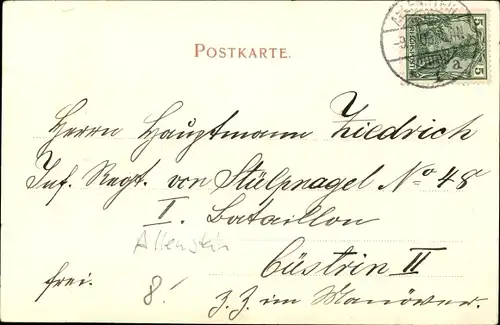 POSTKARTE.
ALLENSTEIN
5 5
a
Herrn Hauptmann Ziedrich
Inf. Regt. von Stülpnagel No 48
I. Bataillon
Allenstein
Cüstrin II
frei.
8.
Z. Z. im Manöver.